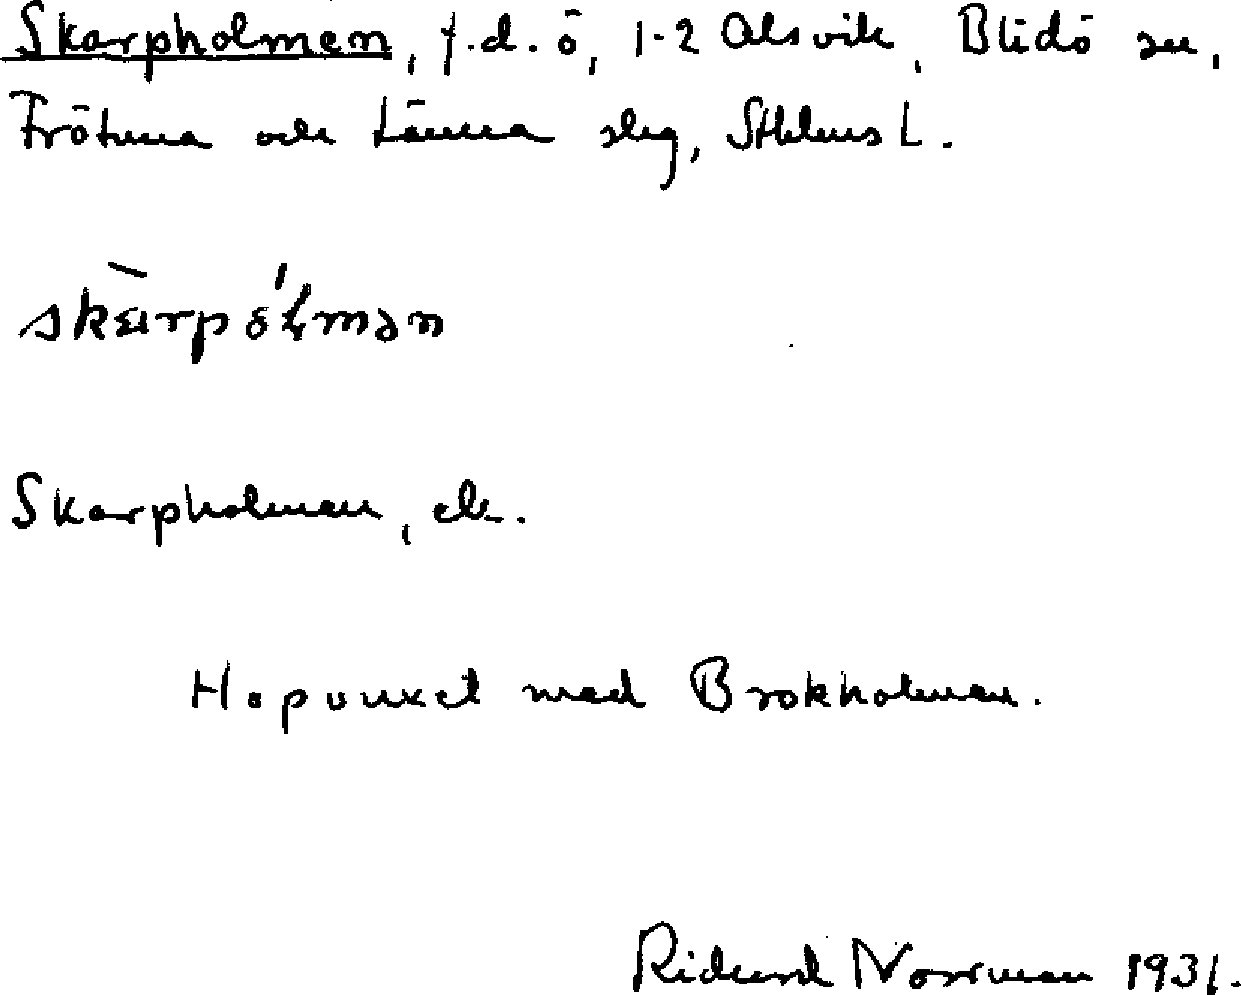 Skarpholmen, f.d. ö, 1-2 Alsvik, Blidö sn,
Frötuna och Länna slg, Sthlms L.
Skarpholmen, ek.
Hopvuxet med Brokholmen.
Rickard Norrman 1931.